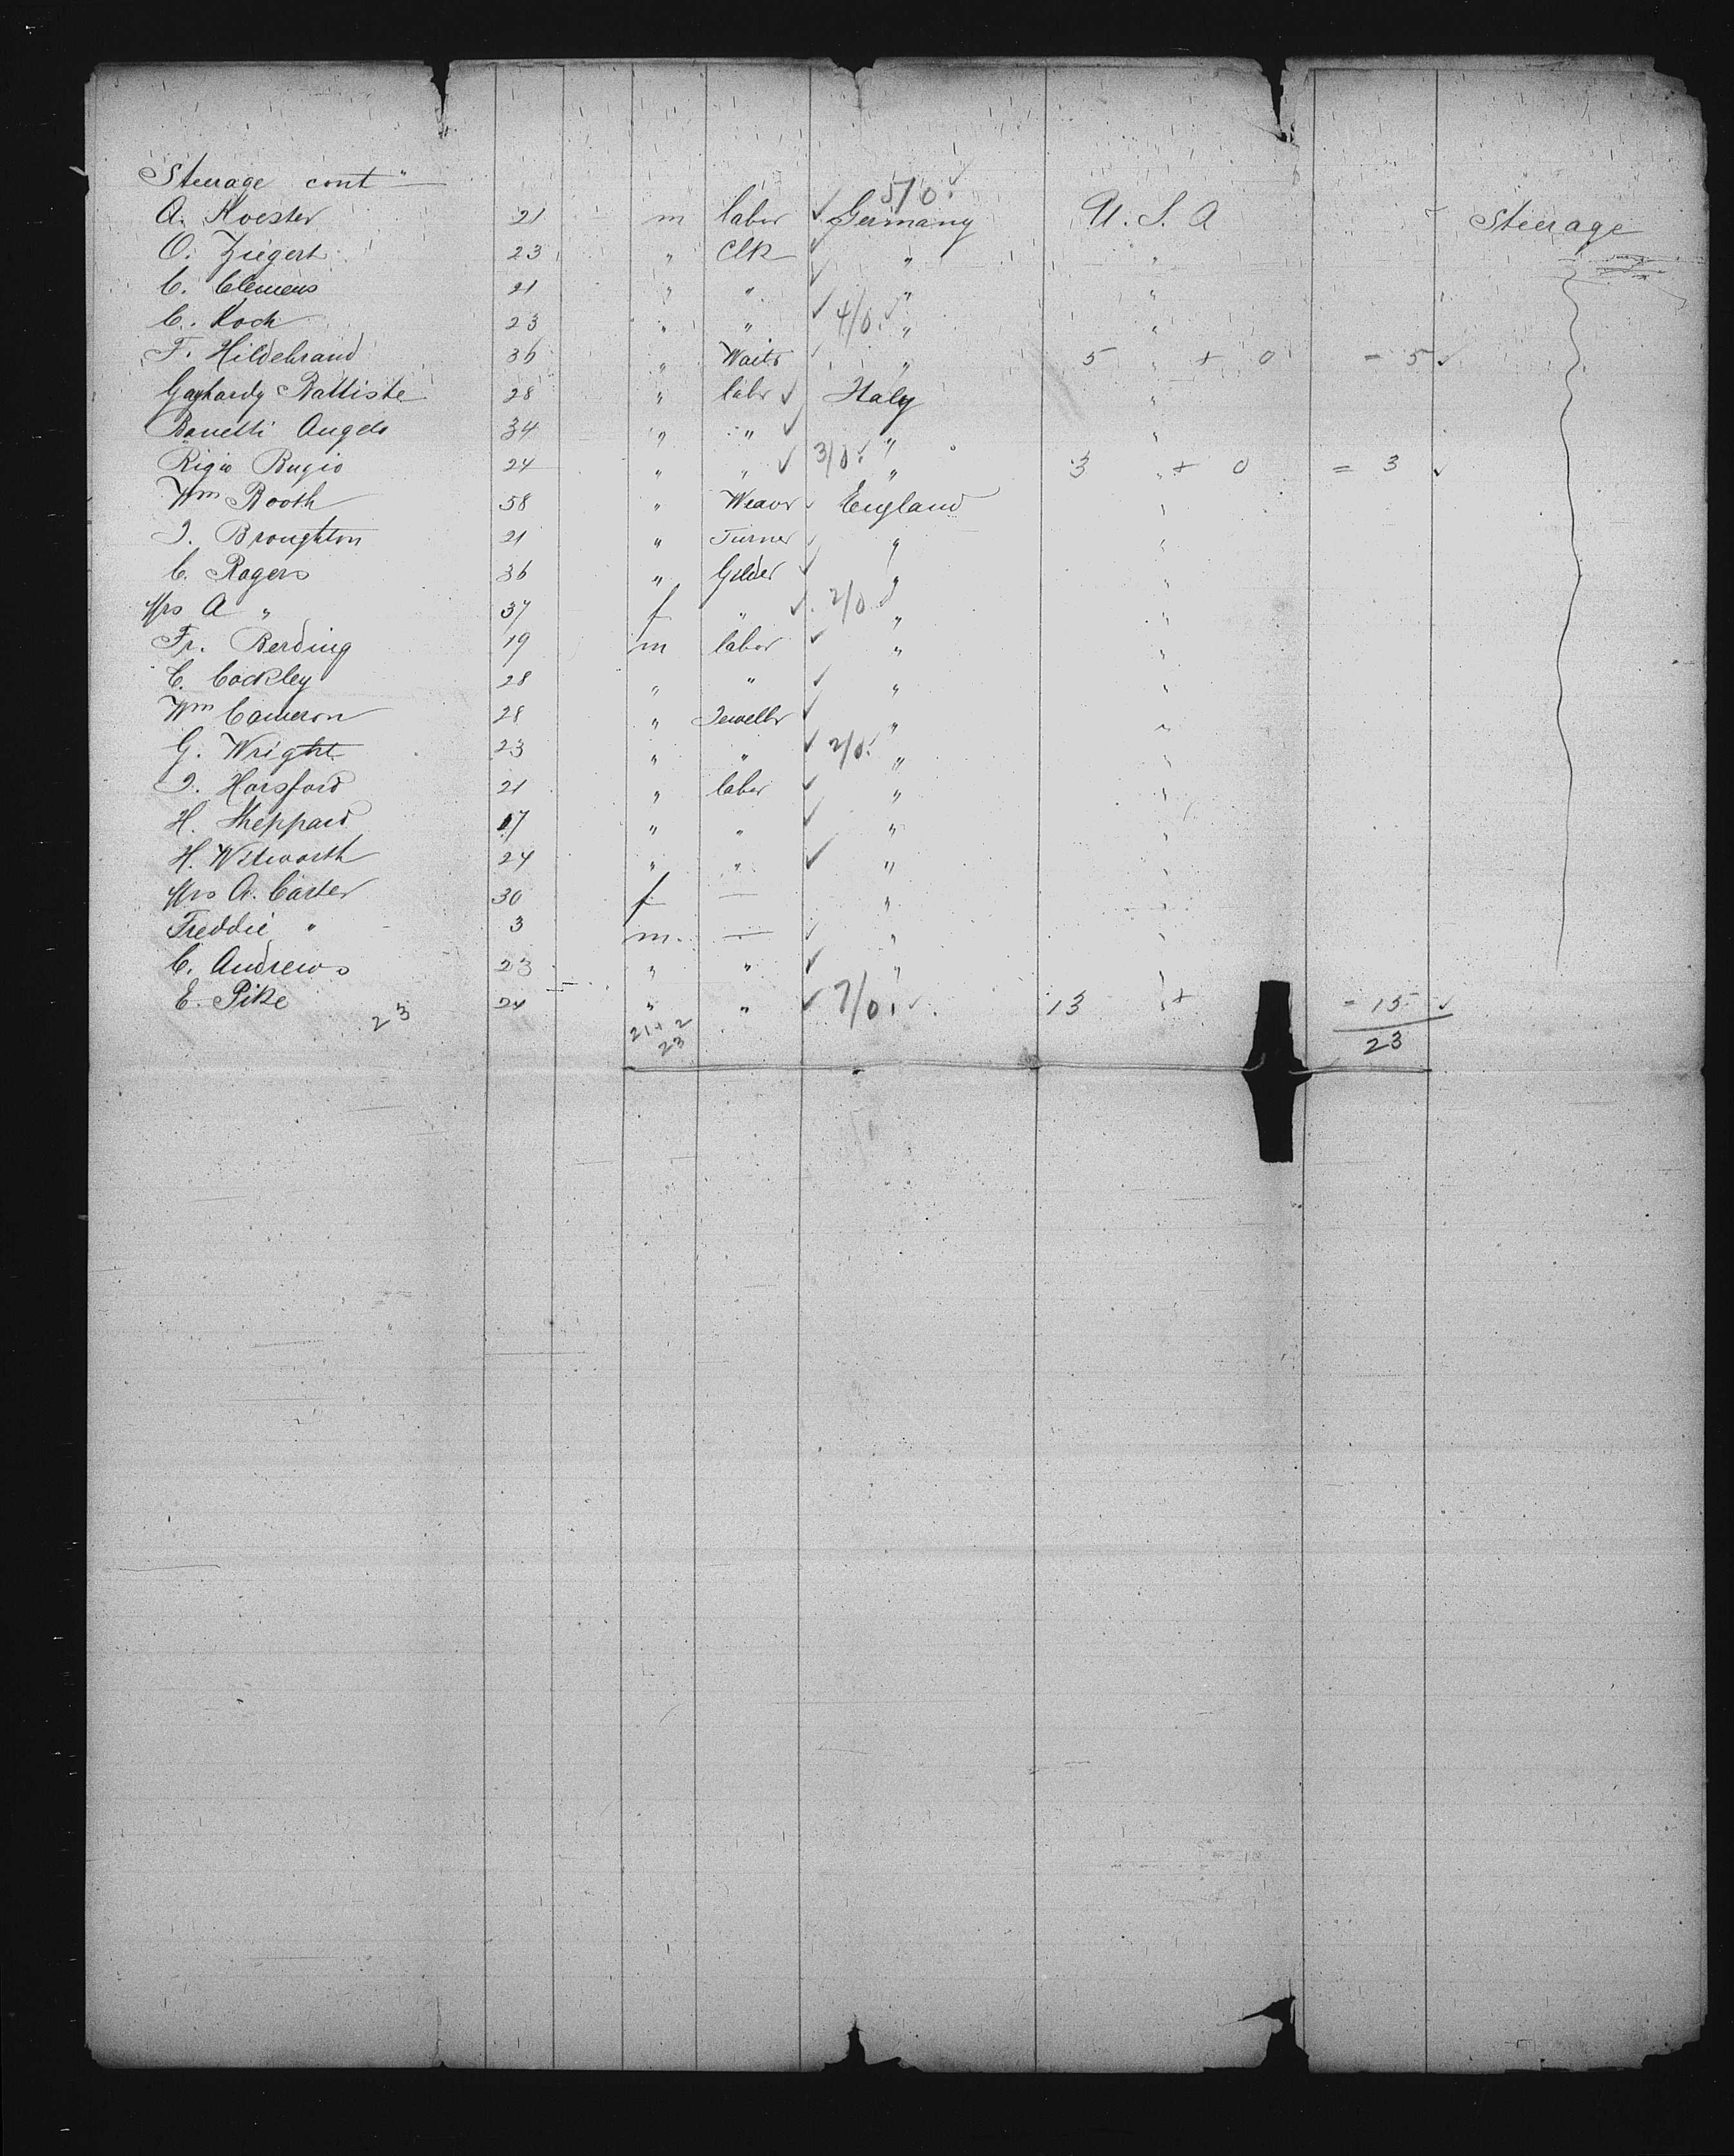 Steerage cont
5/0
A. Koester 21 m labor ✓ Germany U. S. A Steerage
O. Ziegert 23 " Clk ✓ " "
C. Clemens 21 " " ✓ " "
C. Koch 23 " " ✓ 4/0 " "
F. Hildebrand 36 " Waitr ✓ " 5 " + 0 = 5 ✓
Battiste 28 " labr ✓ Italy "
Bonetti Angelo 34 " " ✓ " "
Rigio Bugio 24 " " ✓ 3/0 ✓ " 3 " + 0 = 3 ✓
Wm Booth 58 " Weavr ✓ England "
J. Broughton 21 " Turner ✓ " "
C. Rogers 36 " Gilder ✓ " "
Mrs A " 37 f " ✓ 2/0 " "
Fr. Berding 19 m labor ✓ " "
C. Cockley 28 " " ✓ " "
Wm Cameron 28 " Jewellr ✓ " "
G. Wright 23 " " ✓ 2/0 " "
J. Horsford 21 " labor ✓ " "
H. Sheppard 17 " " ✓ " "
H. Witworth 24 " " ✓ " "
Mrs A. Carter 30 f — " "
Freddie " 3 m. — ✓ " "
C. Andrews 23 " " ✓ " "
E. Pike 24 " " ✓ 7/0 ✓ 13 " + = 15 ✓
23 21 + 2 23
23